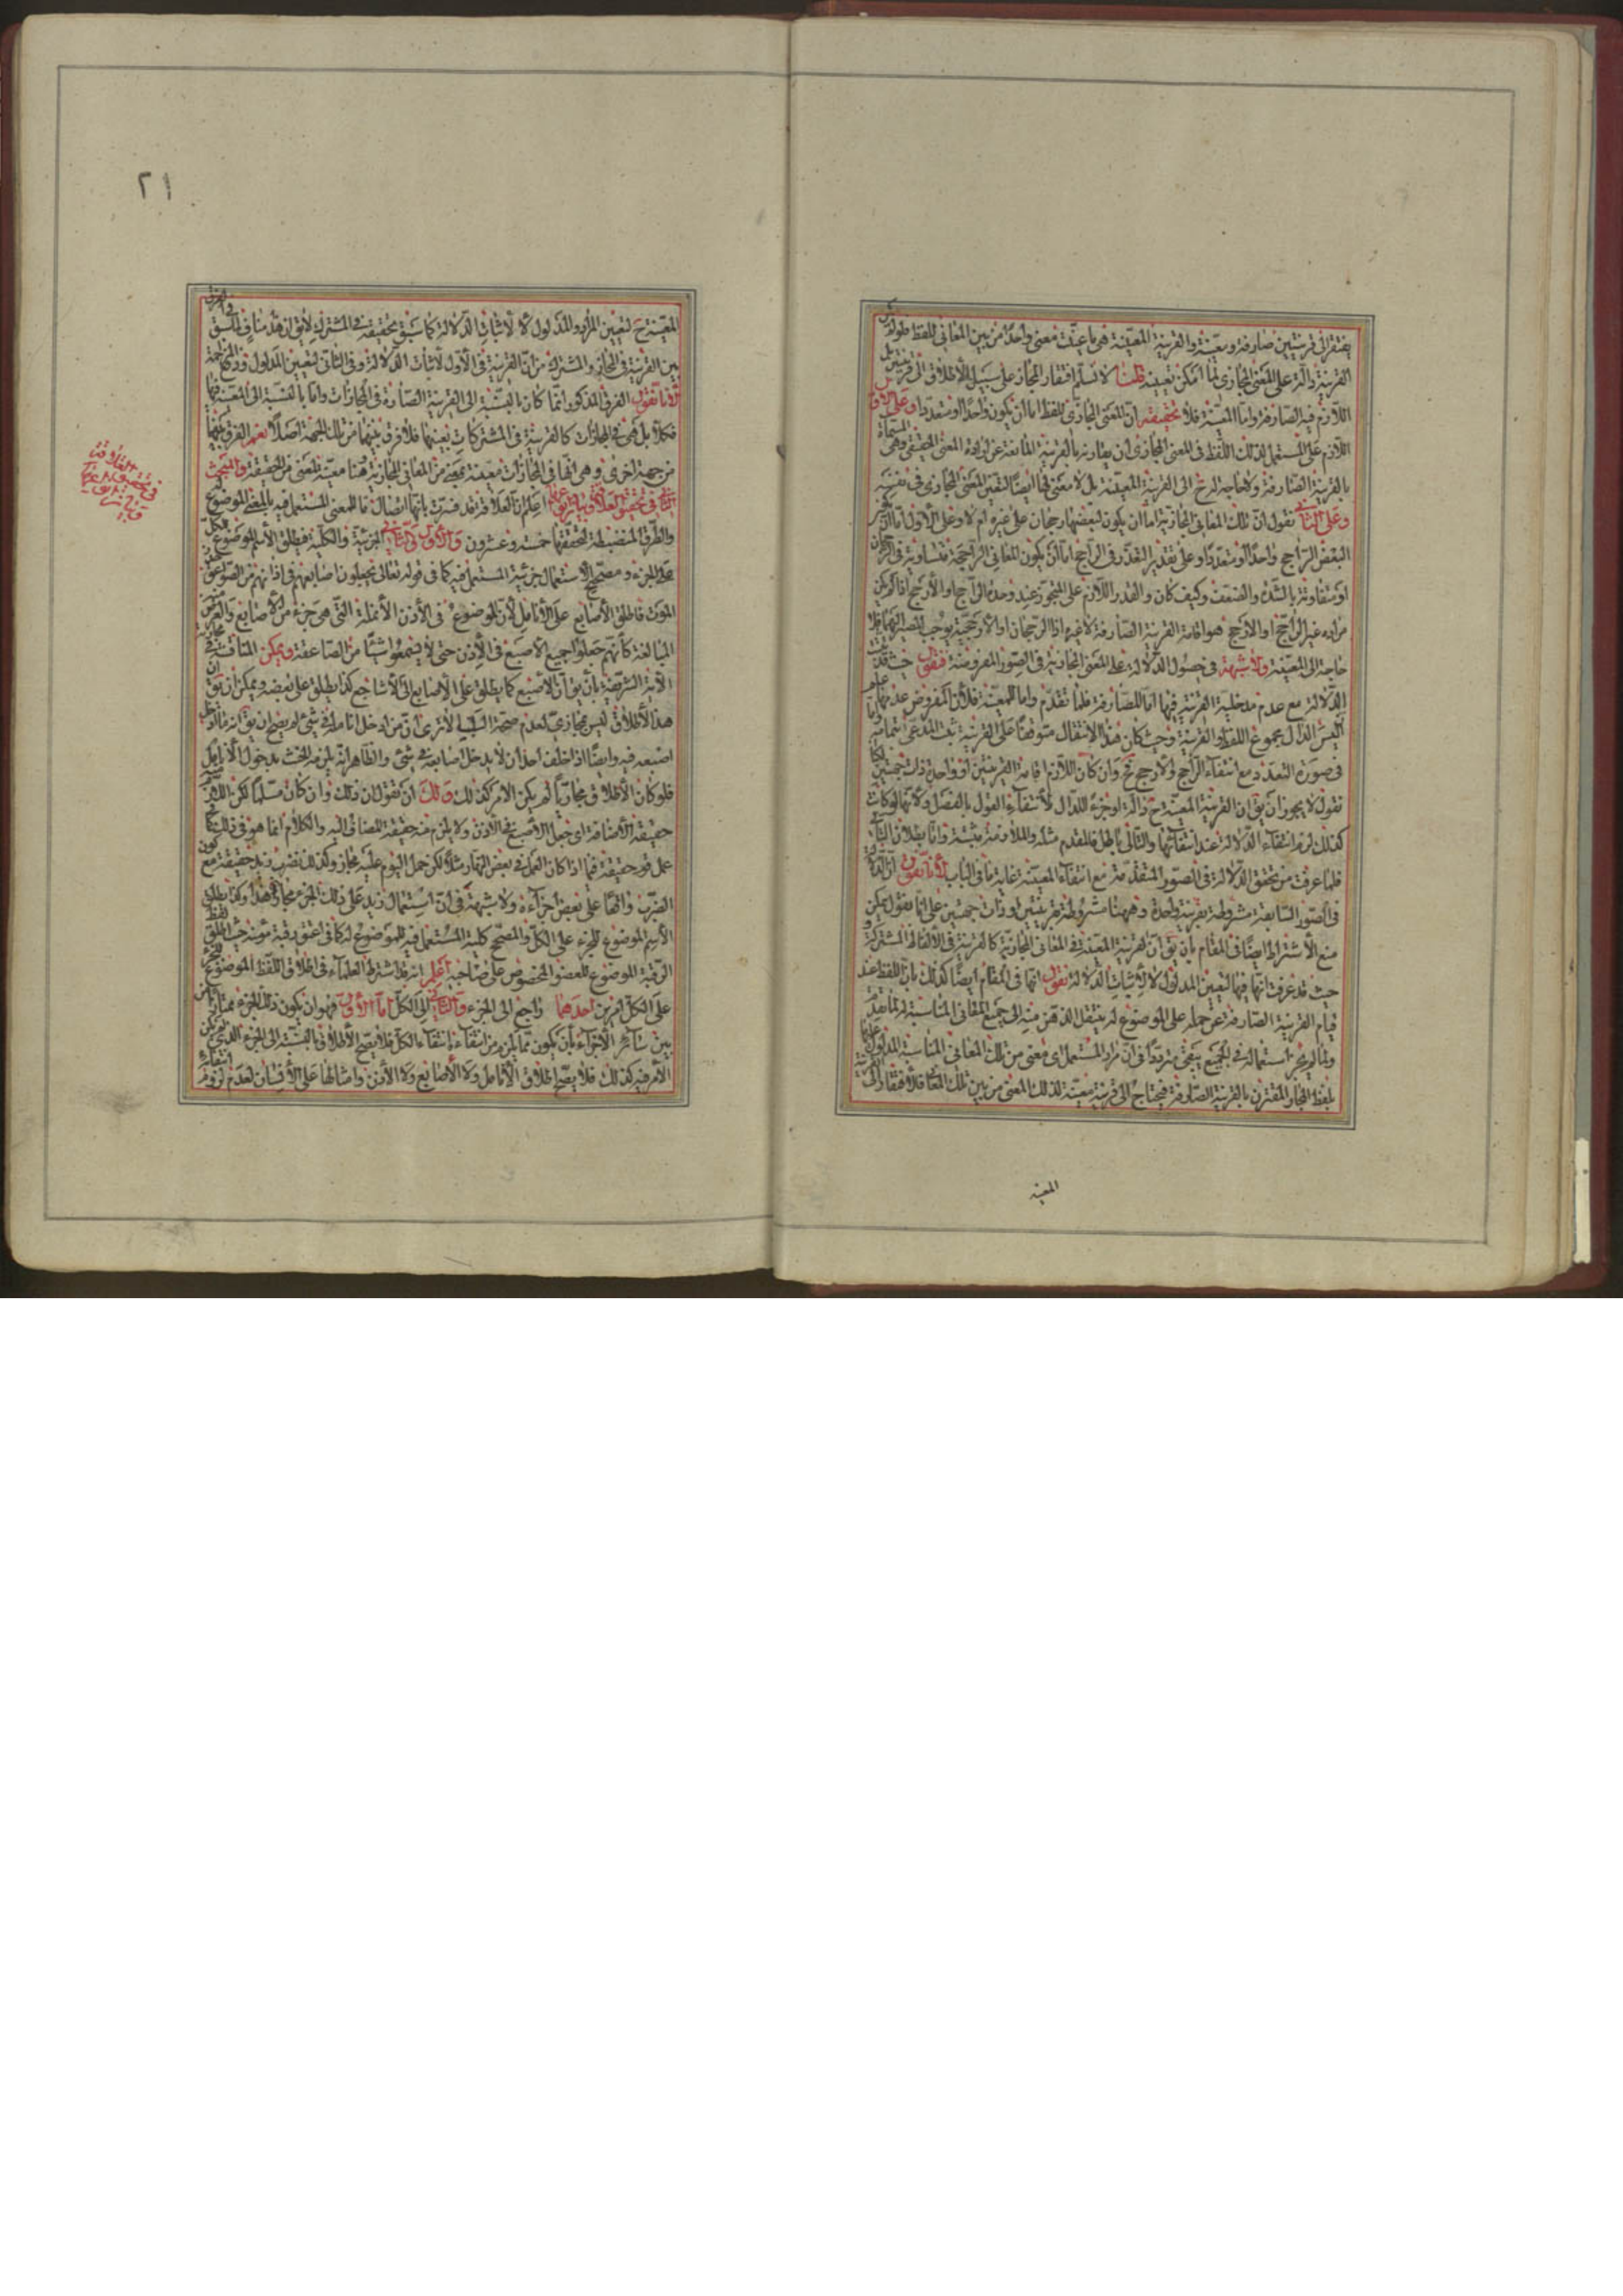 يفتقر الى قرينتين صارفة ومعينة والقرينة المعينة هى ما عينت معنى واحدا من بين المعانى للفظ فلو لم
القرينة دالة على المعنى المجازى لما امكن تعيينه قلنا لا نسلم افتقار المجاز على سبيل الاطلاق الى قرينتين بل
اللازم فيه الصارفة واما المعينة فلا تحقيقه ان المعنى المجازى للفظ اما ان يكون واحدا او متعددا وعلى الاول
اللازم على المستعمل لذلك اللفظ فى المعنى المجازى ان يقارنه بالقرينة المانعة عن ارادة المعنى الحقيقى وهى المسماة
بالقرينة الصارفة ولا حاجة له ح الى القرينة المعينة بل لا معنى لها ايضا لتعين المعنى المجازى فى نفسه
وعلى الثانى نقول ان تلك المعانى المجازية اما ان يكون لبعضها رجحان على غيره ام لا وعلى الاول اما ان يكون
البعض الراجح واحدا او متعددا وعلى تقدير التعدد فى الراجح اما ان يكون المعانى الراجحة متساوية فى الرجحان
او متفاوتة بالشدة والضعف وكيف كان والقدر اللازم على المتجوز عند وحدة الراجح او الارجح اذا لم يكن
مراده غير الراجح او الارجح هو اقامة القرينة الصارفة لا غير اذ الرجحان او الارجحية يوجب المصير اليها فلا
حاجة الى المعينة ولا شبهة فى حصول الدلالة على المعنى المجازى فى الصور المفروضة فنقول حيث قد ثبت
الدلالة مع عدم مدخلية القرينة فيها اما الصارفة فلما تقدم واما المعينة فلان المفروض عدمها علم
اليس الدال مجموع اللفظ والقرينة وحيث كان هذا الانتقال متوقفا على القرينة ثبت المدعى انتما فيه واما
فى صورة التعدد مع انتفاء الراجح والارجح فح وان كان اللازم اقامة القرينتين او واحدة ذات جهتين لكنا
نقول لا يجوز ان يق ان القرينة المعينة ح دالة او جزء للدال لانتفاء القول بالفصل ولانها لو كانت
كذلك لزم انتفاء الدلالة عند انتفائها والتالى باطل فالمقدم مثله والملازمة بينة واما بطلان التالى
فلما عرفت من تحقق الدلالة فى الصور المتقدمة مع انتفاء المعينة غاية ما فى الباب لانا نقول ان الدلالة
فى الصور السابقة مشروطة بقرينة واحدة وههنا مشروطة بقرينتين او ذات جهتين على انا نقول يمكن
منع الاشتراط ايضا فى المقام بان يق ان القرينة المعينة فى المعانى المجازية كالقرينة فى الالفاظ المشتركة و
حيث قد عرفت انها فيها لتعيين المدلول لا لاثبات الدلالة نقول انها فى المقام ايضا كذلك بان اللفظ عند
قيام القرينة الصارفة عن حمله على الموضوع له ينتقل الذهن منه الى جميع المعانى المناسبة له لما تقدم
ولما لم يجز استعماله فى الجميع يبقى مترددا فى ان مراد المستعمل اى معنى من تلك المعانى المناسبة المدلول عليها
بلفظ المجاز المقترن بالقرينة الصارفة فيحتاج الى قرينة معينة لذلك المعنى من بين تلك المعانى فلافتقار الى القرينة
المعينة
٢١
المعينة ح لتعيين المراد والمدلول لا لاثبات الدلالة كما سبق تحقيقه فى المشترك لا يق ان هذا مناف لما سبق فى الفرق
بين القرينة فى المجاز والمشترك من ان القرينة فى الاول لاثبات الدلالة وفى الثانى لتعيين المدلول ورفع المزاحمة
لانا نقول الفرق المذكور انما كان بالنسبة الى القرينة الصارفة فى المجازات واما بالنسبة الى المعينة فيها
فكلا بل هى فى المجازات كالقرينة فى المشتركات بعينها فلا فرق بينهما من تلك الجهة اصلا نعم الفرق بينهما
من جهة اخرى وهى انها فى المجازات معينة لبعض من المعانى المجازية وهنا معينة للمعنى من الحقيقة والمبحث
الثانى فى تحقيق العلاقة وبيان انواعها اعلم ان العلاقة قد فسرت بانها اتصال ما للمعنى المستعمل فيه بالمعنى الموضوع له
والطرق المنضبطة لتحققها خمسة وعشرون والاول والثانى الجزئية والكلية فيطلق الاسم الموضوع للكل
على الجزء ومصحح الاستعمال جزئية المستعمل فيه كما فى قوله تعالى يجعلون اصابعهم فى اذانهم من الصواعق حذر
الموت فاطلق الاصابع على الانامل لان الموضوع فى الاذن الانملة التى هى جزء من الاصابع والغرض منه
المبالغة كانهم جعلوا جميع الاصبع فى الاذن حتى لا يسمعوا شيئا من الصاعقة ويمكن المناقشة فى مجازية
الاية الشريفة بان يق ان الاصبع كما يطلق على الاصابع الى الاشاجع كذا يطلق على بعضه ويمكن ان يق ان
هذا الاطلاق ليس بمجازى لعدم صحة السلب الا ترى ان من ادخل انامله فى شئ لم يصح ان يق انه ما ادخل
اصبعه فيه وايضا اذا حلف احد ان لا يدخل اصابعه فى شئ والظاهر انه يلزمه الحنث بدخول الانامل
فلو كان الاطلاق مجازيا لم يكن الامر كذلك ولك ان تقول ان ذلك وان كان مسلما لكن اللازم منه
حقيقة الاضافة اى جعل الاصبع فى الاذن ولا يلزم منه حقيقة المضاف اليه والكلام انما هو فى ذلك كما
عمل فهو حقيقة فيما اذا كان العمل فى بعض النهار مثلا لكن حمل اليوم عليه مجاز وكذلك نضرب زيد حقيقة مع كون
الضرب واقعا على بعض اجزاءه ولا شبهة فى ان استعمال زيد على ذلك الجزء مجاز هذا وكذا يطلق
الاسم الموضوع للجزء على الكل والمصحح كلية المستعمل فيه للموضوع له كما فى اعتق رقبة مؤمنة حيث اطلق لفظ
الرقبة الموضوع للعضو المخصوص على صاحبه اعلم انه قد اشترط العلماء فى اطلاق اللفظ الموضوع للجزء
على الكل امرين احدهما راجع الى الجزء والثانى الى الكل اما الاول فهو ان يكون ذلك الجزء ممتازا من
بين سائر الاجزاء بان يكون مما يلزم من انتفاءه انتفاء الكل فلا يصح الاطلاق بالنسبة الى الجزء الذى لم يكن
الامر فيه كذلك فلا يصح اطلاق الانامل ولا الاصابع ولا الاذن وامثالها على الانسان لعدم لزوم انتفاء
فى تحقيق العلاقة